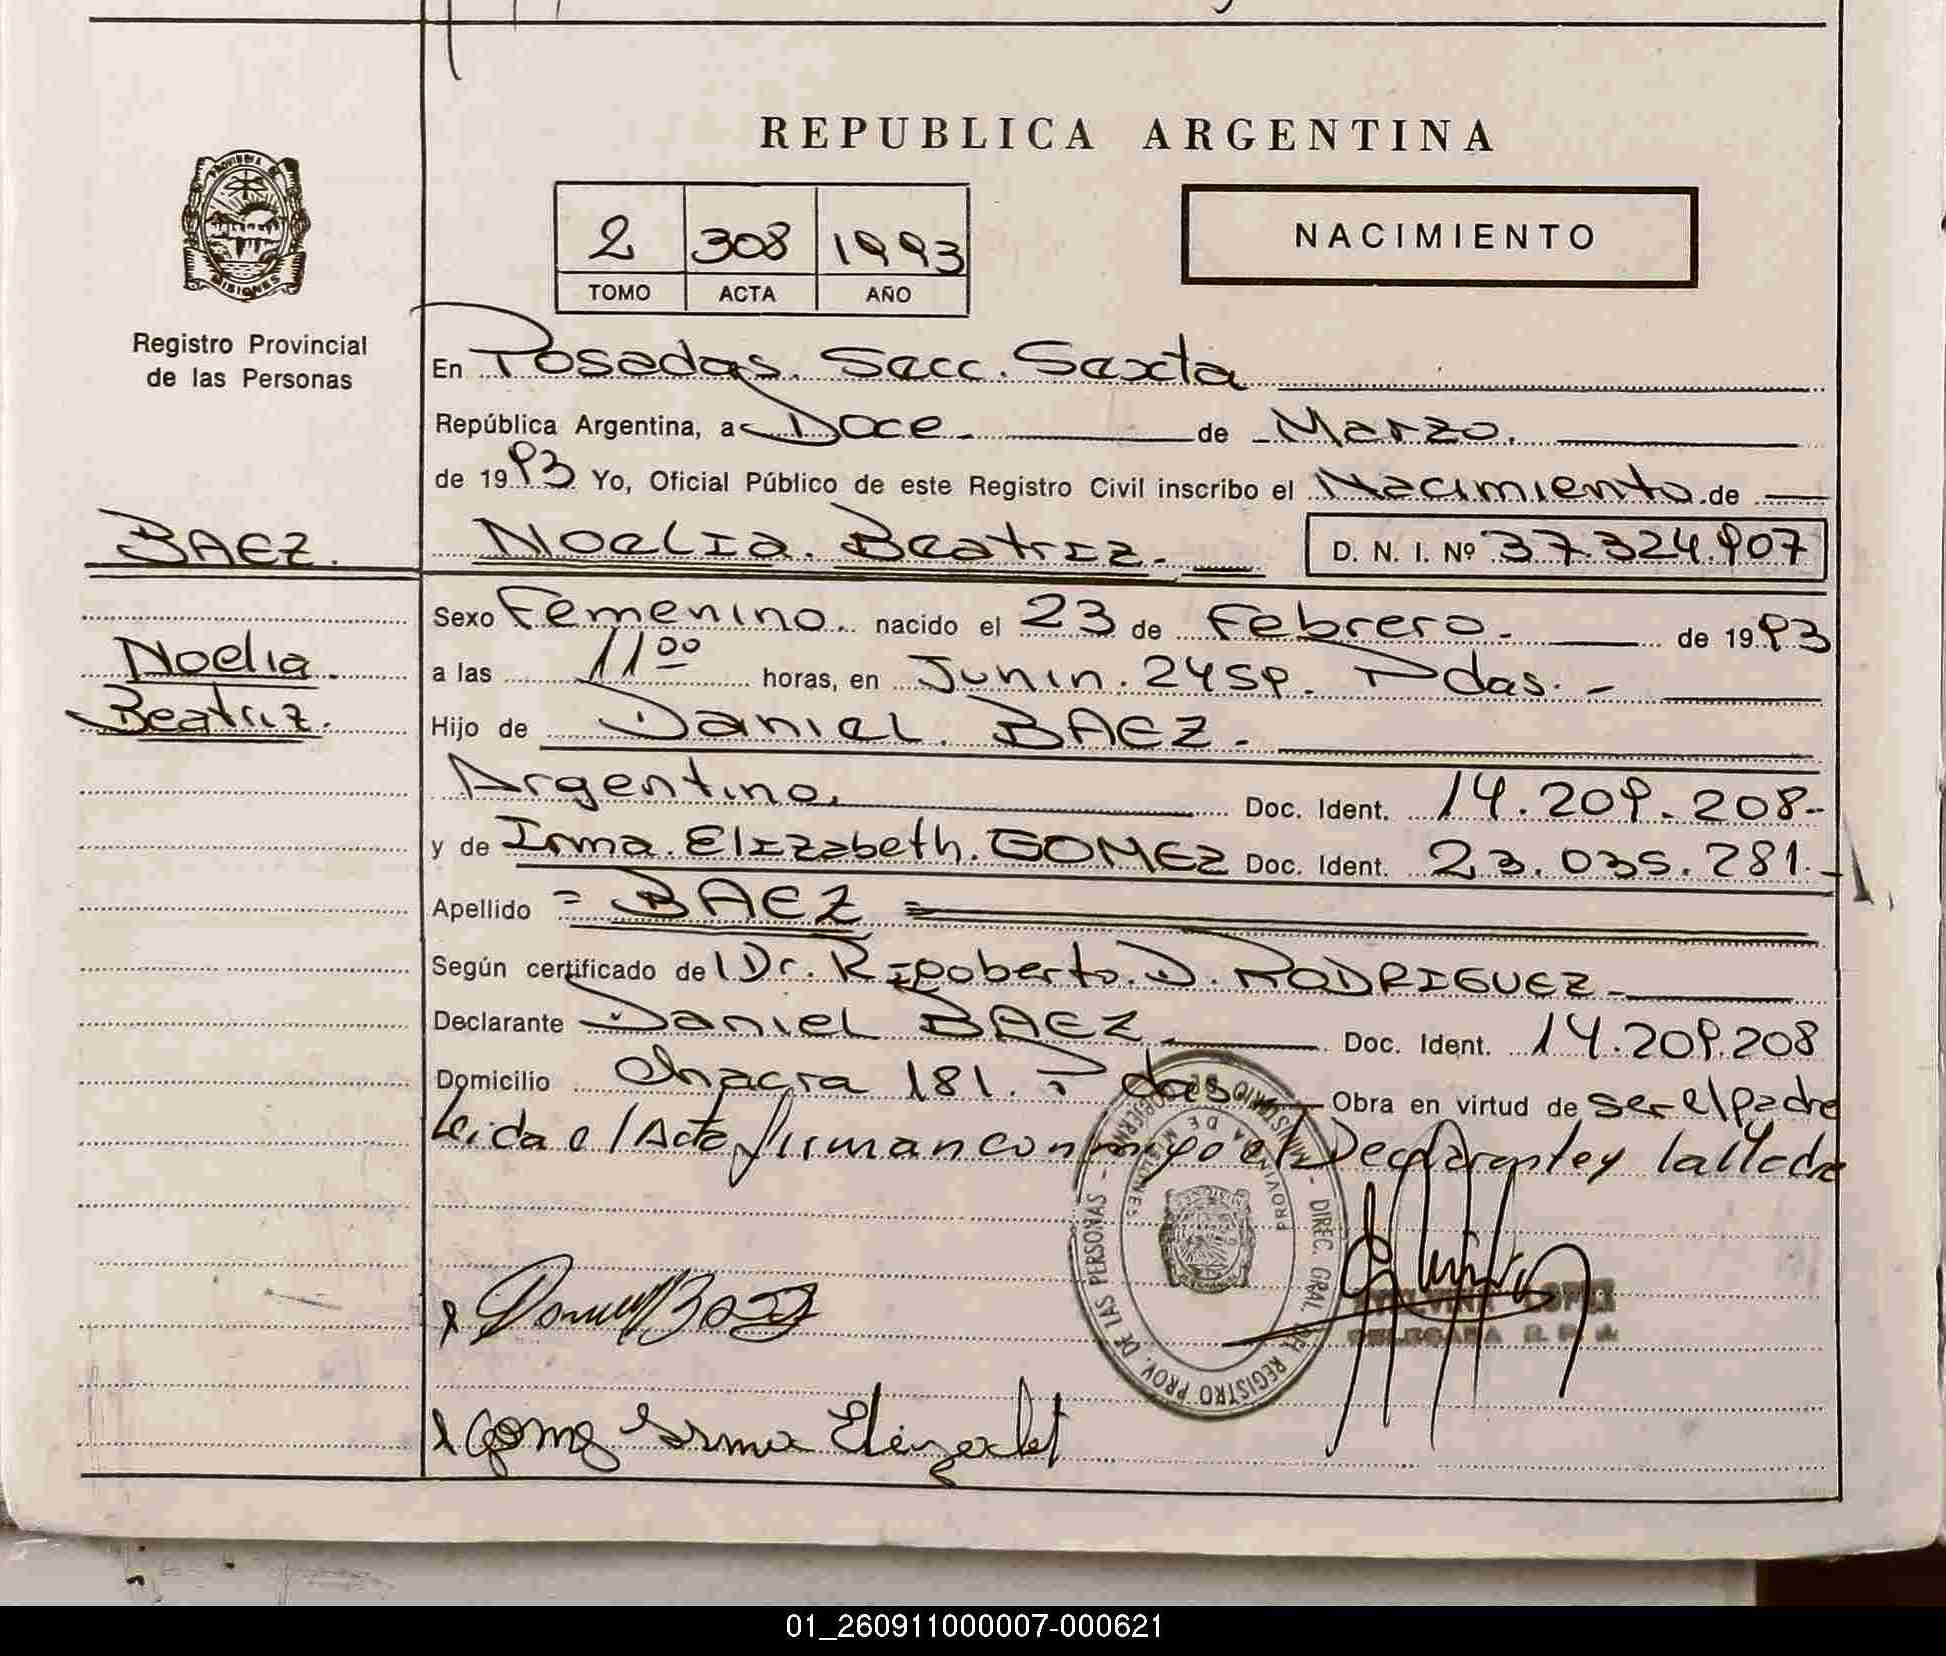 REPUBLICA ARGENTINA
2 308 1993
TOMO ACTA AÑO
NACIMIENTO
PROVINCIA DE
MISIONES
Registro Provincial
de las Personas
En Posadas. Secc. Sexta
República Argentina, a Doce de Marzo.
de 1993 Yo, Oficial Público de este Registro Civil inscribo el Nacimiento de
BAEZ.
Noelia. Beatriz. D. N. I. Nº 37.324.907
Sexo Femenino. nacido el 23 de Febrero. de 1993
Noelia
Beatriz.
a las 11 00 horas, en Junin. 2459. Pdas. -
Hijo de Daniel. BAEZ.
Argentino. Doc. Ident. 14.209.208-
y de Irma. Elizabeth. GOMEZ Doc. Ident. 23.035.281.-
Apellido = BAEZ =
Según certificado del Dr. Rigoberto. D. RODRIGUEZ
Declarante Daniel BAEZ Doc. Ident. 14.209.208
Domicilio Chacra 181. Pdas Obra en virtud de ser el padre
Leida el Acta firman conmigo el Declarante y la Madre
DIREC. GRAL. DEL REGISTRO PROV. DE LAS PERSONAS - MINISTERIO DE
PROVINCIA DE MISIONES
Daniel Baez
LOPEZ
DELEGADA
Gomez Irma Elizabet
01_260911000007-000621